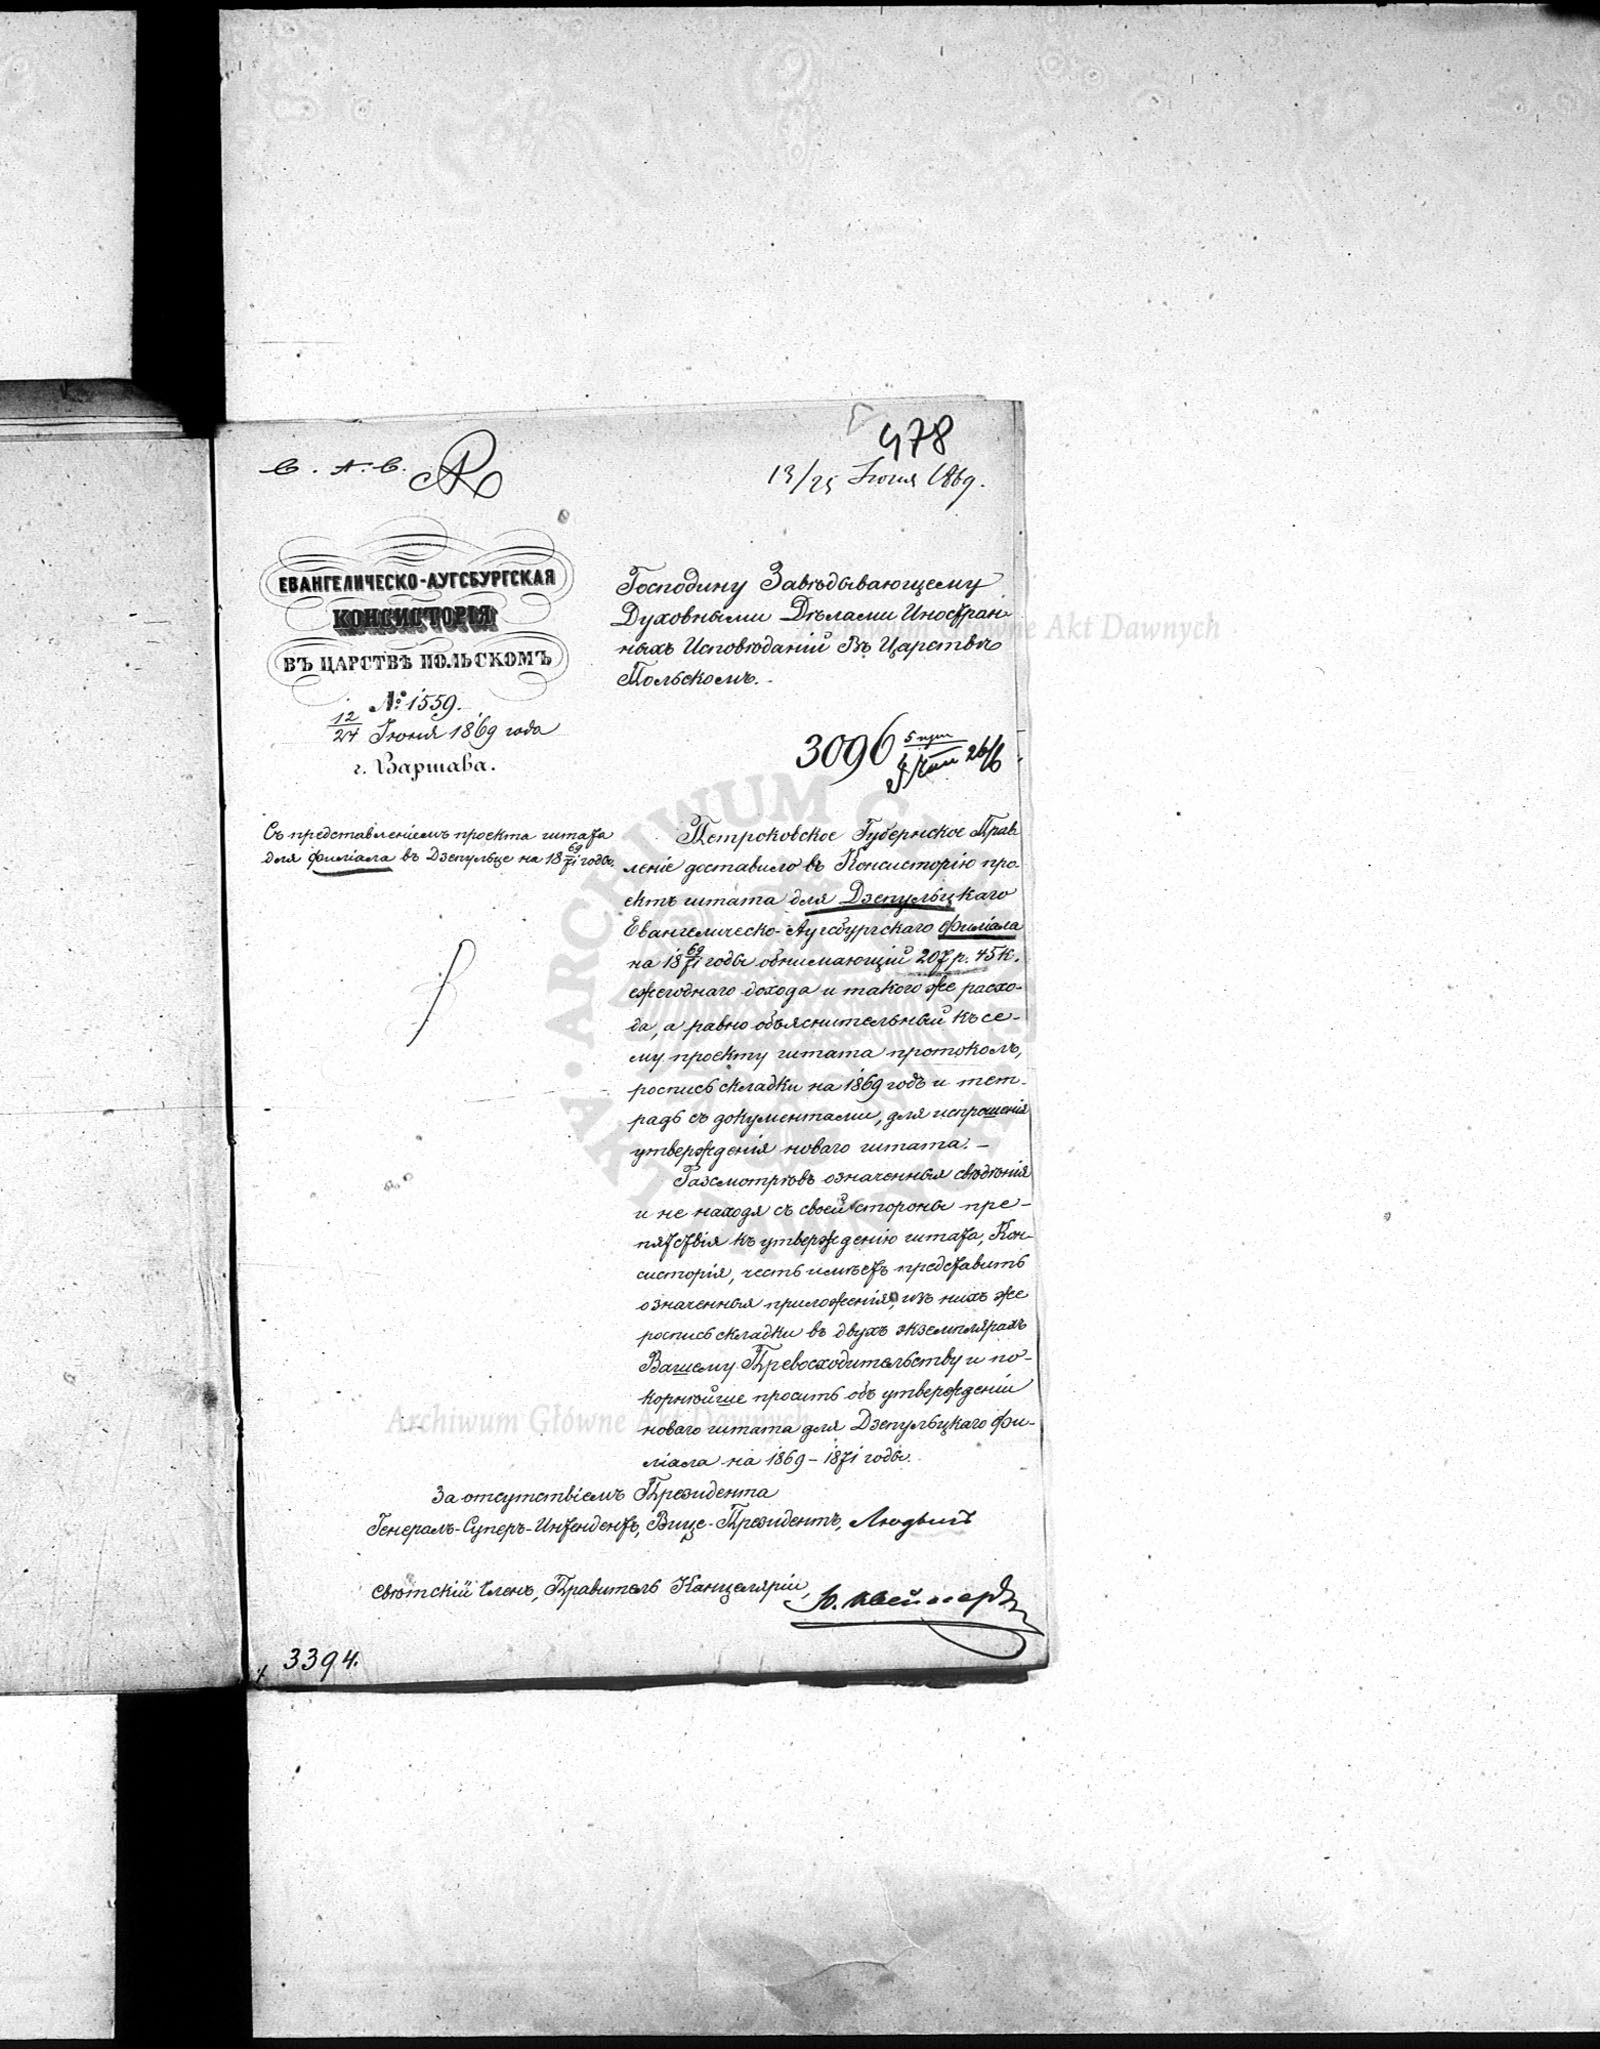 С. А. С.
478
13/25 Іюня 1869.
ЕВАНГЕЛИЧЕСКО-АУГСБУРГСКАЯ
КОНСИСТОРІЯ
ВЪ ЦАРСТВѢ ПОЛЬСКОМЪ
№ 1559.
12/24 Іюня 1869 года
г. Варшава.
Господину Завѣдывающему
Духовными Дѣлами Иностран-
ныхъ Исповѣданій Въ Царствѣ
Польскомъ.
3096 5 прил 26/6
Съ представленіемъ проекта штата
для филіала въ Дзепульце на 18 69/71 годы.
Петроковское Губернское Прав
леніе доставило въ Консисторію про-
ектъ штата для Дзепульцкаго
Евангелическо-Аугсбургскаго филіала
на 18 69/71 годы обнимающій 207 р. 45 к.
ежегоднаго дохода и такого же расхо-
да, а равно объяснительный къ се-
му проекту штата протоколъ,
роспись складки на 1869 годъ и тет-
радь съ документами, для испрошенія
утвержденія новаго штата. –
Разсмотрѣвъ означенныя свѣдѣнія
и не находя съ своей стороны пре-
пятствія къ утвержденію штата, Кон-
систорія, честь имѣетъ представить
означенныя приложенія, изъ нихъ же
роспись складки въ двухъ экземплярахъ
Вашему Превосходительству и по-
корнѣйше просить объ утвержденіи
новаго штата для Дзепульцкаго фи-
ліала на 1869 – 1871 годы.
За отсутствіемъ Президента
Генералъ-Суперъ-Интендентъ, Вице-Президентъ, Людвигъ
Свѣтскій Членъ, Правитель Канцеляріи,
3394.
Archiwum Główne Akt Dawnych
Archiwum Główne Akt Dawnych
ARCHIWUM GŁÓWNE AKT DAWNYCH